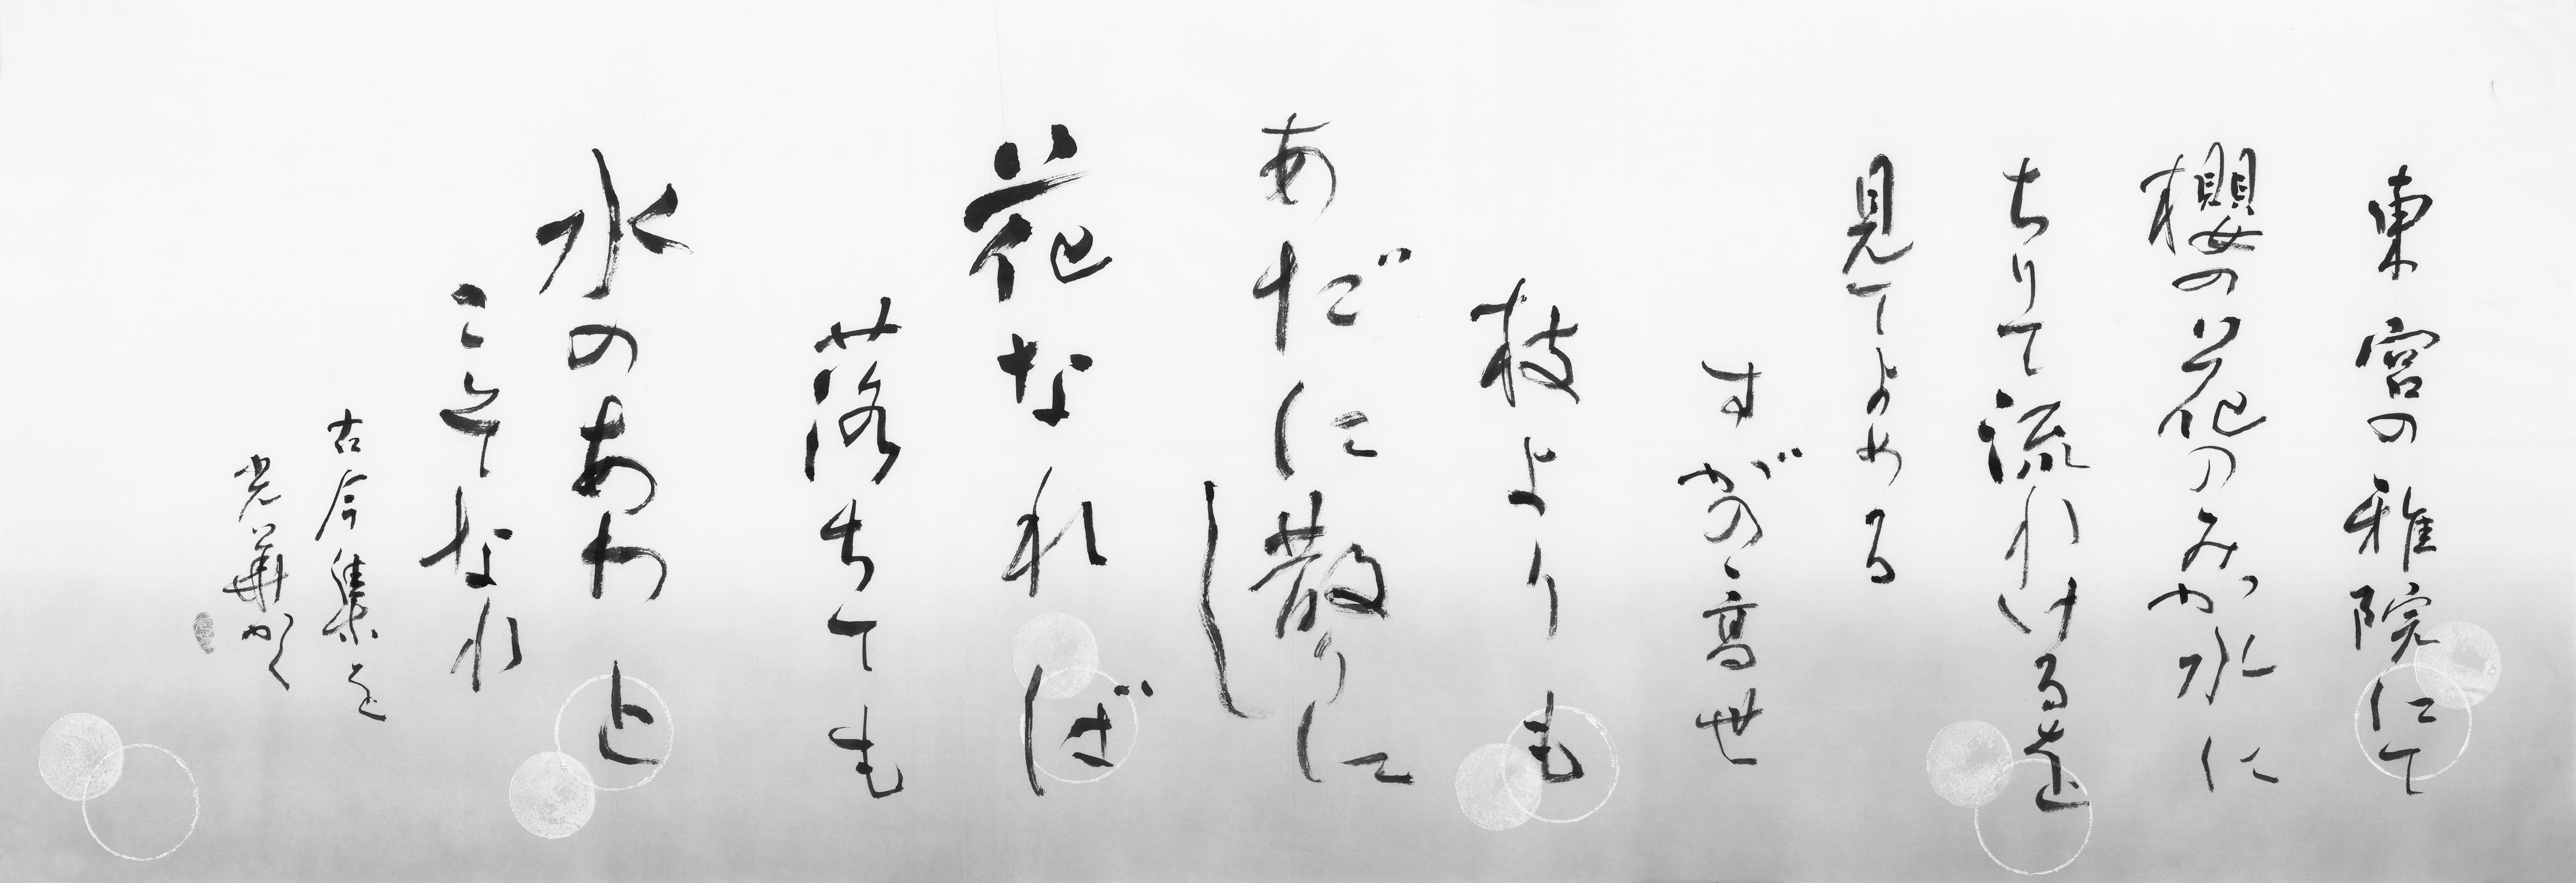 東宮の雅院にて
櫻の花のみか水に
ちりて流れけるを
見てよめる
すがのゝ高世
枝よりも
あだに散りに
し
花なれば
落ちても
水のあわと
こそなれ
古今集を
光華かく